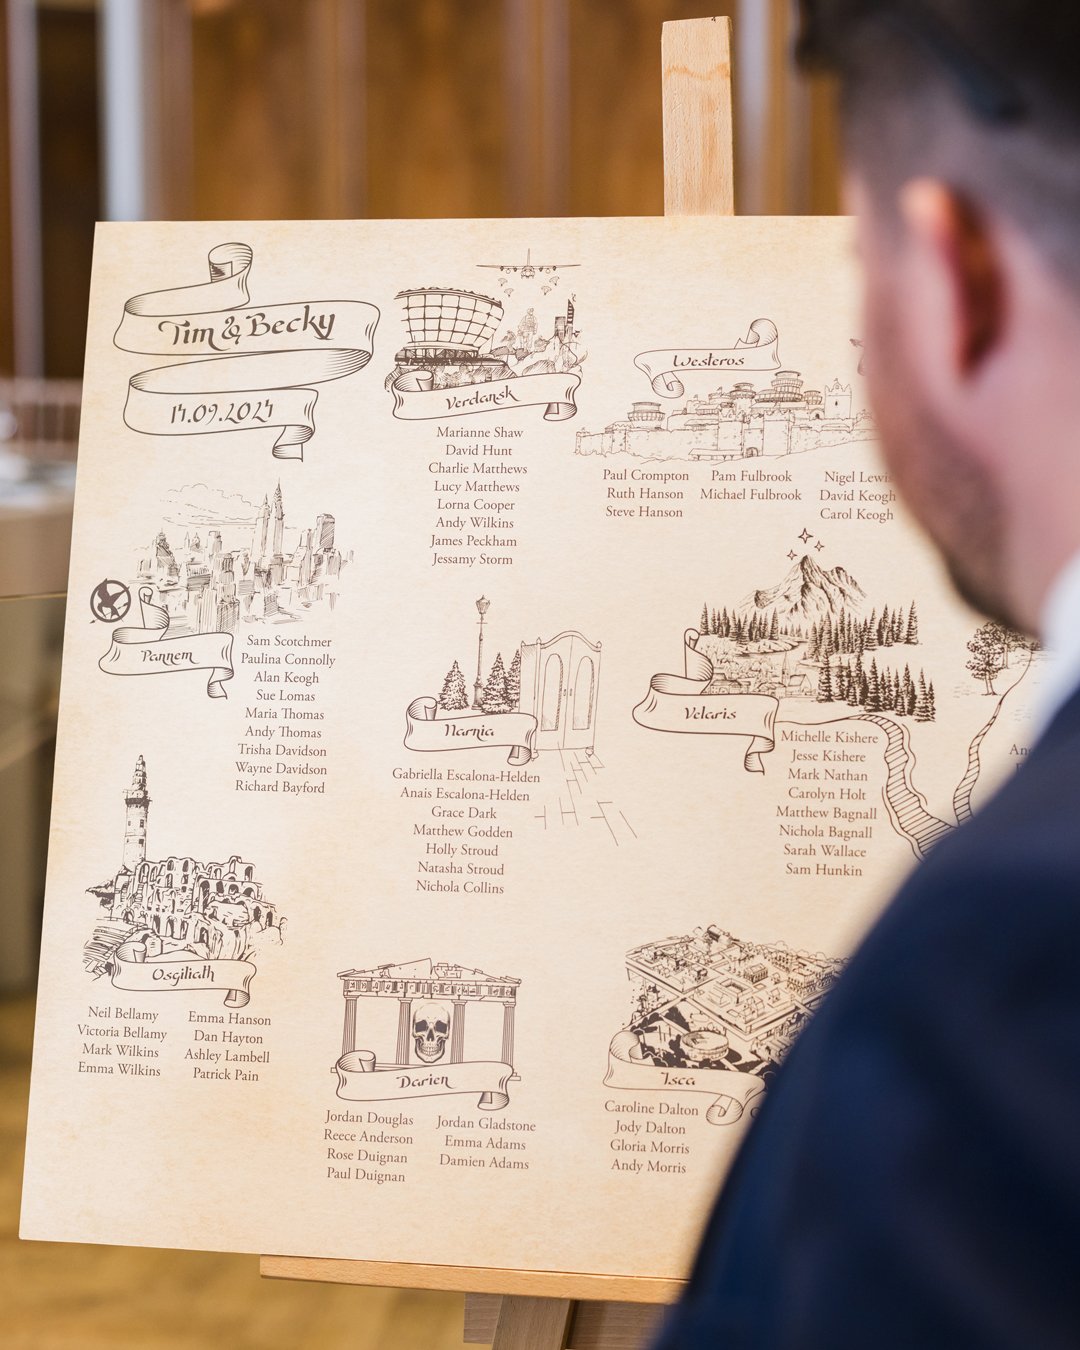 Tim & Becky
14.09.2024
Verdansk
Marianne Shaw
David Hunt
Charlie Matthews
Lucy Matthews
Lorna Cooper
Andy Wilkins
James Peckham
Jessamy Storm
Westeros
Paul Crompton
Ruth Hanson
Steve Hanson
Pam Fulbrook
Michael Fulbrook
Nigel Lewis
David Keogh
Carol Keogh
Pannem
Sam Scotchmer
Paulina Connolly
Alan Keogh
Sue Lomas
Maria Thomas
Andy Thomas
Trisha Davidson
Wayne Davidson
Richard Bayford
Narnia
Gabriella Escalona-Helden
Anais Escalona-Helden
Grace Dark
Matthew Godden
Holly Stroud
Natasha Stroud
Nichola Collins
Velaris
Michelle Kishere
Jesse Kishere
Mark Nathan
Carolyn Holt
Matthew Bagnall
Nichola Bagnall
Sarah Wallace
Sam Hunkin
Osgiliath
Neil Bellamy
Victoria Bellamy
Mark Wilkins
Emma Wilkins
Emma Hanson
Dan Hayton
Ashley Lambell
Patrick Pain
Darien
Jordan Douglas
Reece Anderson
Rose Duignan
Paul Duignan
Jordan Gladstone
Emma Adams
Damien Adams
Isca
Caroline Dalton
Jody Dalton
Gloria Morris
Andy Morris